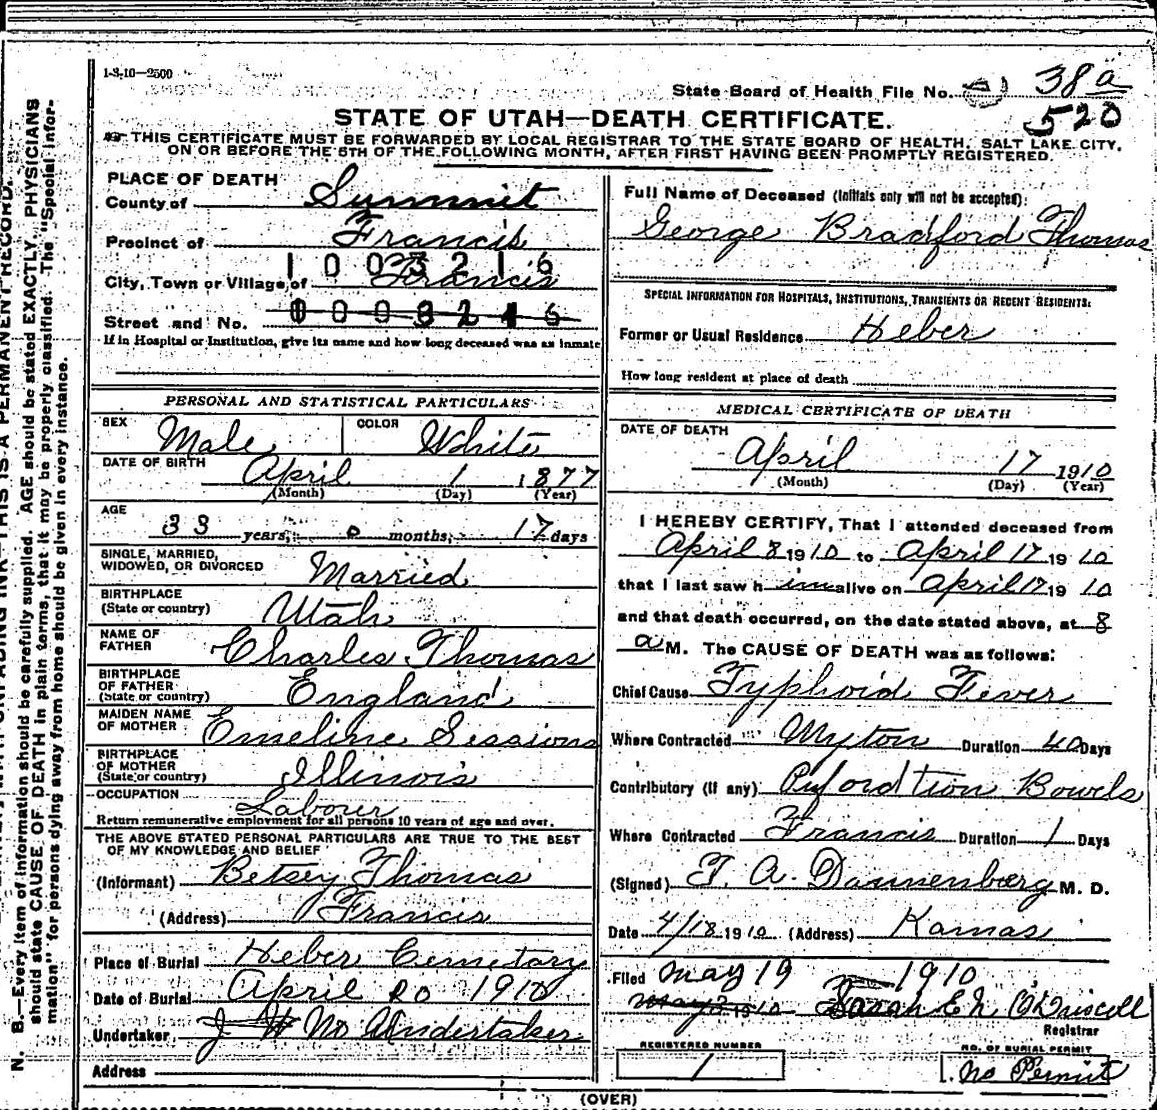 1-3-10—2500
State Board of Health File No. 38 a
520
STATE OF UTAH—DEATH CERTIFICATE.
THIS CERTIFICATE MUST BE FORWARDED BY LOCAL REGISTRAR TO THE STATE BOARD OF HEALTH, SALT LAKE CITY,
ON OR BEFORE THE 5TH OF THE FOLLOWING MONTH, AFTER FIRST HAVING BEEN PROMPTLY REGISTERED.
PLACE OF DEATH
County of Summit
Precinct of Francis
1003216
City, Town or Village of Francis
Street and No. 0003216
If in Hospital or Institution, give its name and how long deceased was an inmate
PERSONAL AND STATISTICAL PARTICULARS
SEX Male COLOR White
DATE OF BIRTH April 1 1877
(Month) (Day) (Year)
AGE
33 years, 0 months, 17 days
SINGLE, MARRIED,
WIDOWED, OR DIVORCED Married
BIRTHPLACE
(State or country) Utah
NAME OF
FATHER Charles Thomas
BIRTHPLACE
OF FATHER
(State or country) England
MAIDEN NAME
OF MOTHER Emeline Sessions
BIRTHPLACE
OF MOTHER
(State or country) Illinois
OCCUPATION Labour
Return remunerative employment for all persons 10 years of age and over.
THE ABOVE STATED PERSONAL PARTICULARS ARE TRUE TO THE BEST
OF MY KNOWLEDGE AND BELIEF
(Informant) Betsey Thomas
(Address) Francis
Place of Burial Heber Cemetary
Date of Burial April 20 1910
Undertaker J W No Undertaker
Address
Full Name of Deceased (Initials only will not be accepted):
George Bradford Thomas
SPECIAL INFORMATION FOR HOSPITALS, INSTITUTIONS, TRANSIENTS OR RECENT RESIDENTS:
Former or Usual Residence Heber
How long resident at place of death
MEDICAL CERTIFICATE OF DEATH
DATE OF DEATH
April 17 1910
(Month) (Day) (Year)
I HEREBY CERTIFY, That I attended deceased from
April 8 1910 to April 17 1910
that I last saw h im alive on April 17 1910
and that death occurred, on the date stated above, at 8
a M. The CAUSE OF DEATH was as follows:
Chief Cause Typhoid Fever
Where Contracted Myton Duration 40 Days
Contributory (if any) Bowels
Where Contracted Francis Duration 1 Days
(Signed) T. A. Dannenberg M. D.
Date 4/18 1910 (Address) Kamas
Filed May 19 1910
May 2 1910 Sarah E N O'Driscoll
Registrar
REGISTERED NUMBER
1
NO. OF BURIAL PERMIT
No Permit
(OVER)
N. B.—Every item of information should be carefully supplied. AGE should be stated EXACTLY. PHYSICIANS
should state CAUSE OF DEATH in plain terms, that it may be properly classified. The "Special Infor-
mation" for persons dying away from home should be given in every instance.
INK—THIS IS A PERMANENT RECORD.